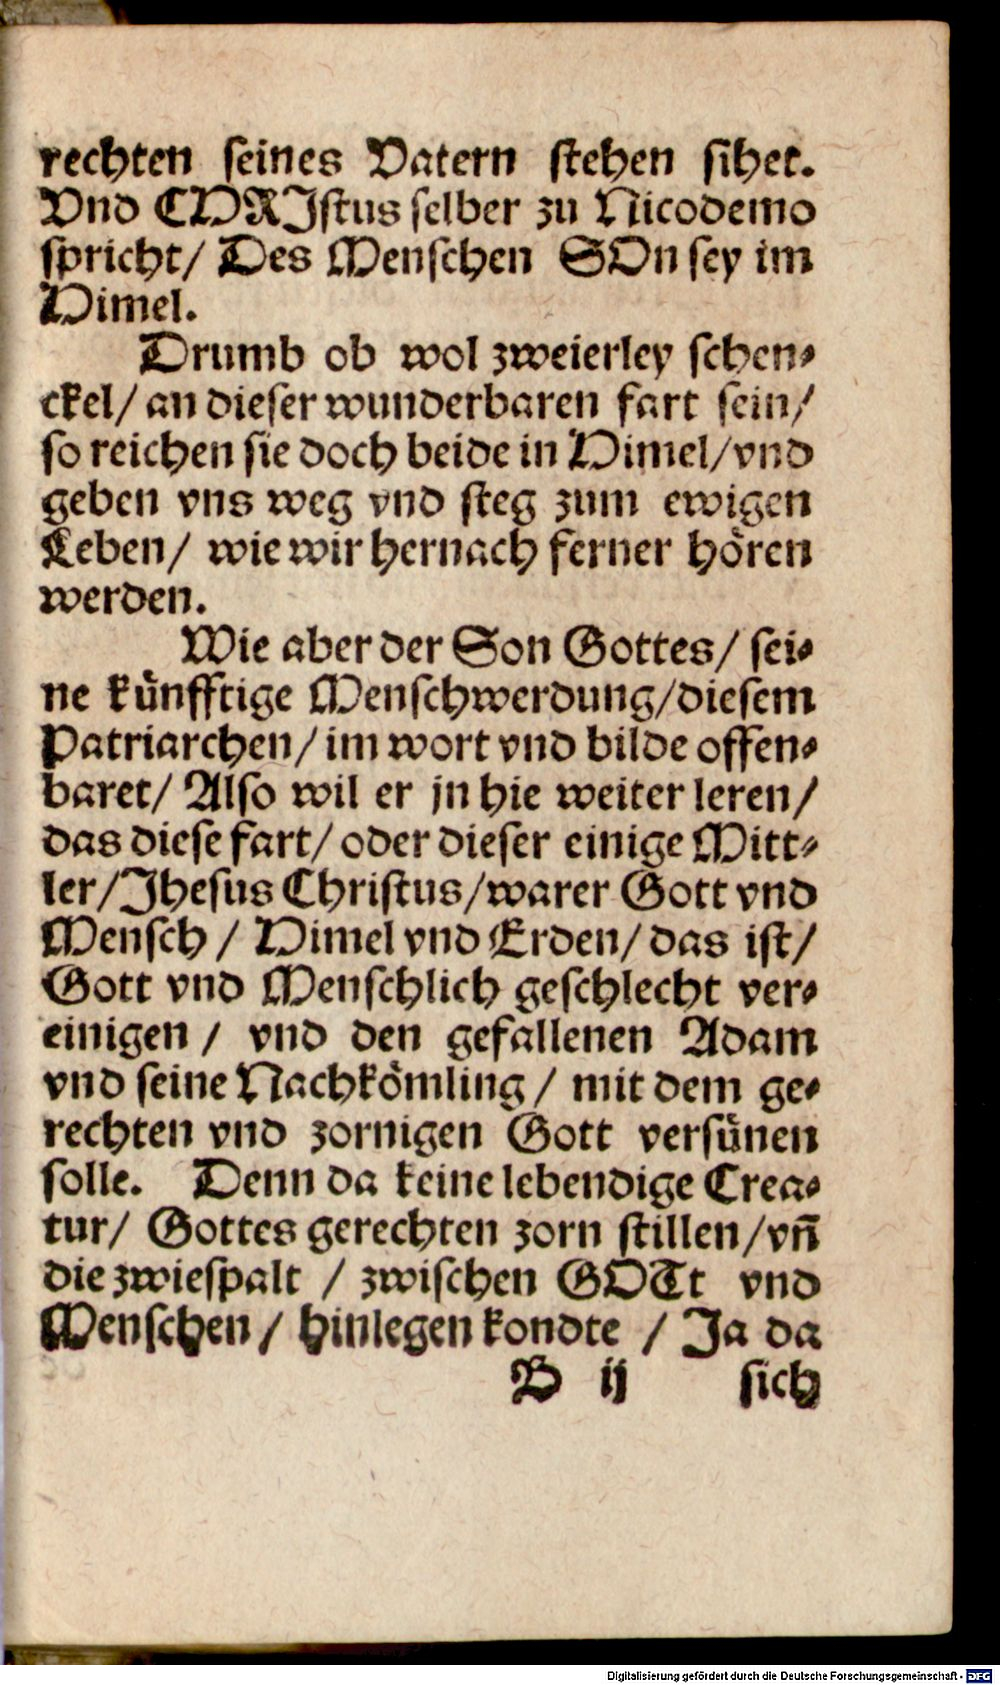 rechten seines Vatern stehen sihet.
Vnd CHRIstus selber zu Nicodemo
spricht/ Des Menschen SOn sey im
Himel.
Drumb ob wol zweierley schen-
ckel/ an dieser wunderbaren fart sein/
so reichen sie doch beide in Himel/vnd
geben vns weg vnd steg zum ewigen
Leben/ wie wir hernach ferner hören
werden.
Wie aber der Son Gottes/ sei-
ne künfftige Menschwerdung/diesem
Patriarchen/ im wort vnd bilde offen-
baret/ Also wil er jn hie weiter leren/
das diese fart/ oder dieser einige Mitt-
ler/Jhesus Christus/warer Gott vnd
Mensch/ Himel vnd Erden/ das ist/
Gott vnd Menschlich geschlecht ver-
einigen/ vnd den gefallenen Adam
vnd seine Nachkömling/ mit dem ge-
rechten vnd zornigen Gott versünen
solle. Denn da keine lebendige Crea-
tur/ Gottes gerechten zorn stillen/vñ
die zwiespalt / zwischen GOTt vnd
Menschen/ hinlegen kondte / Ja da
B ij sich
Digitalisierung gefördert durch die Deutsche Forschungsgemeinschaft - DFG